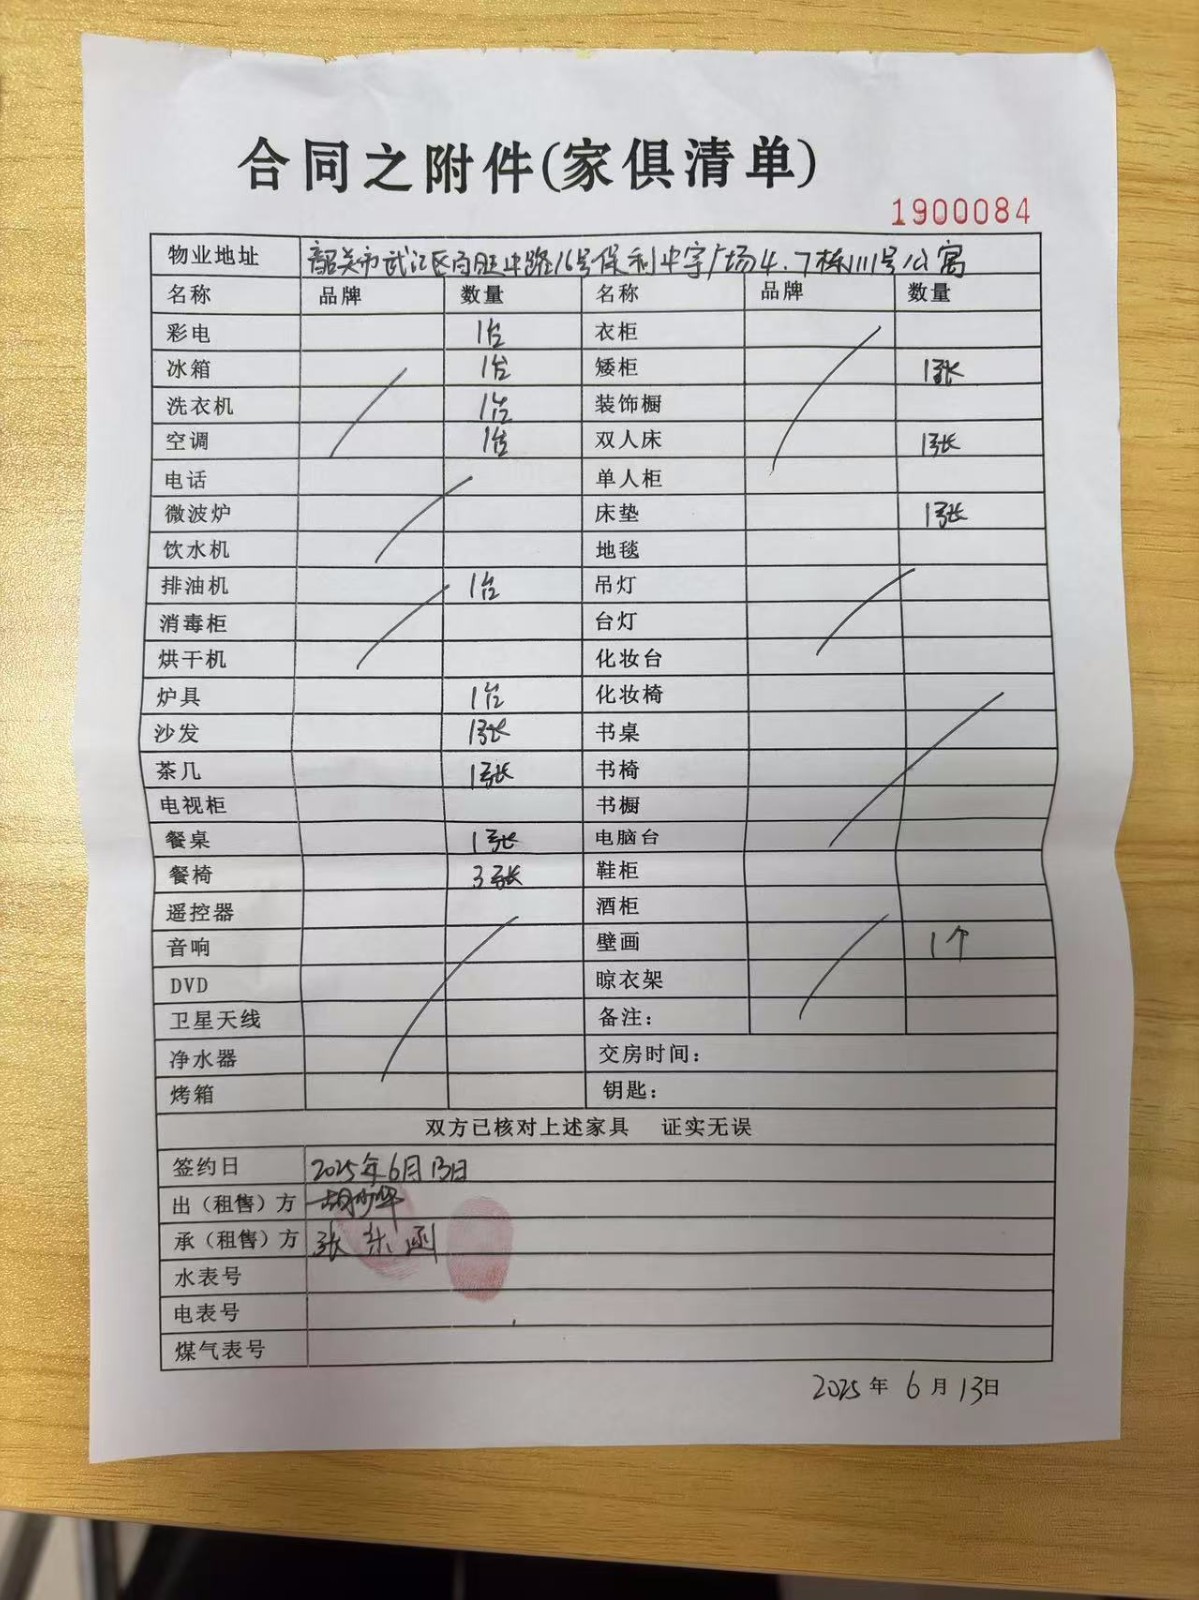 合同之附件(家俱清单)
1900084
物业地址 韶关市武江区百旺中路16号保利中宇广场4.7栋1111号公寓
名称 品牌 数量 名称 品牌 数量
彩电 1台 衣柜
冰箱 1台 矮柜 1张
洗衣机 1台 装饰橱
空调 1台 双人床 1张
电话 单人柜
微波炉 床垫 1张
饮水机 地毯
排油机 1台 吊灯
消毒柜 台灯
烘干机 化妆台
炉具 1台 化妆椅
沙发 1张 书桌
茶几 1张 书椅
电视柜 书橱
餐桌 1张 电脑台
餐椅 3张 鞋柜
遥控器 酒柜
音响 壁画 1个
DVD 晾衣架
卫星天线 备注：
净水器 交房时间：
烤箱 钥匙：
双方已核对上述家具 证实无误
签约日 2025年6月13日
出（租售）方 胡少华
承（租售）方 张东函
水表号
电表号
煤气表号
2025年6月13日